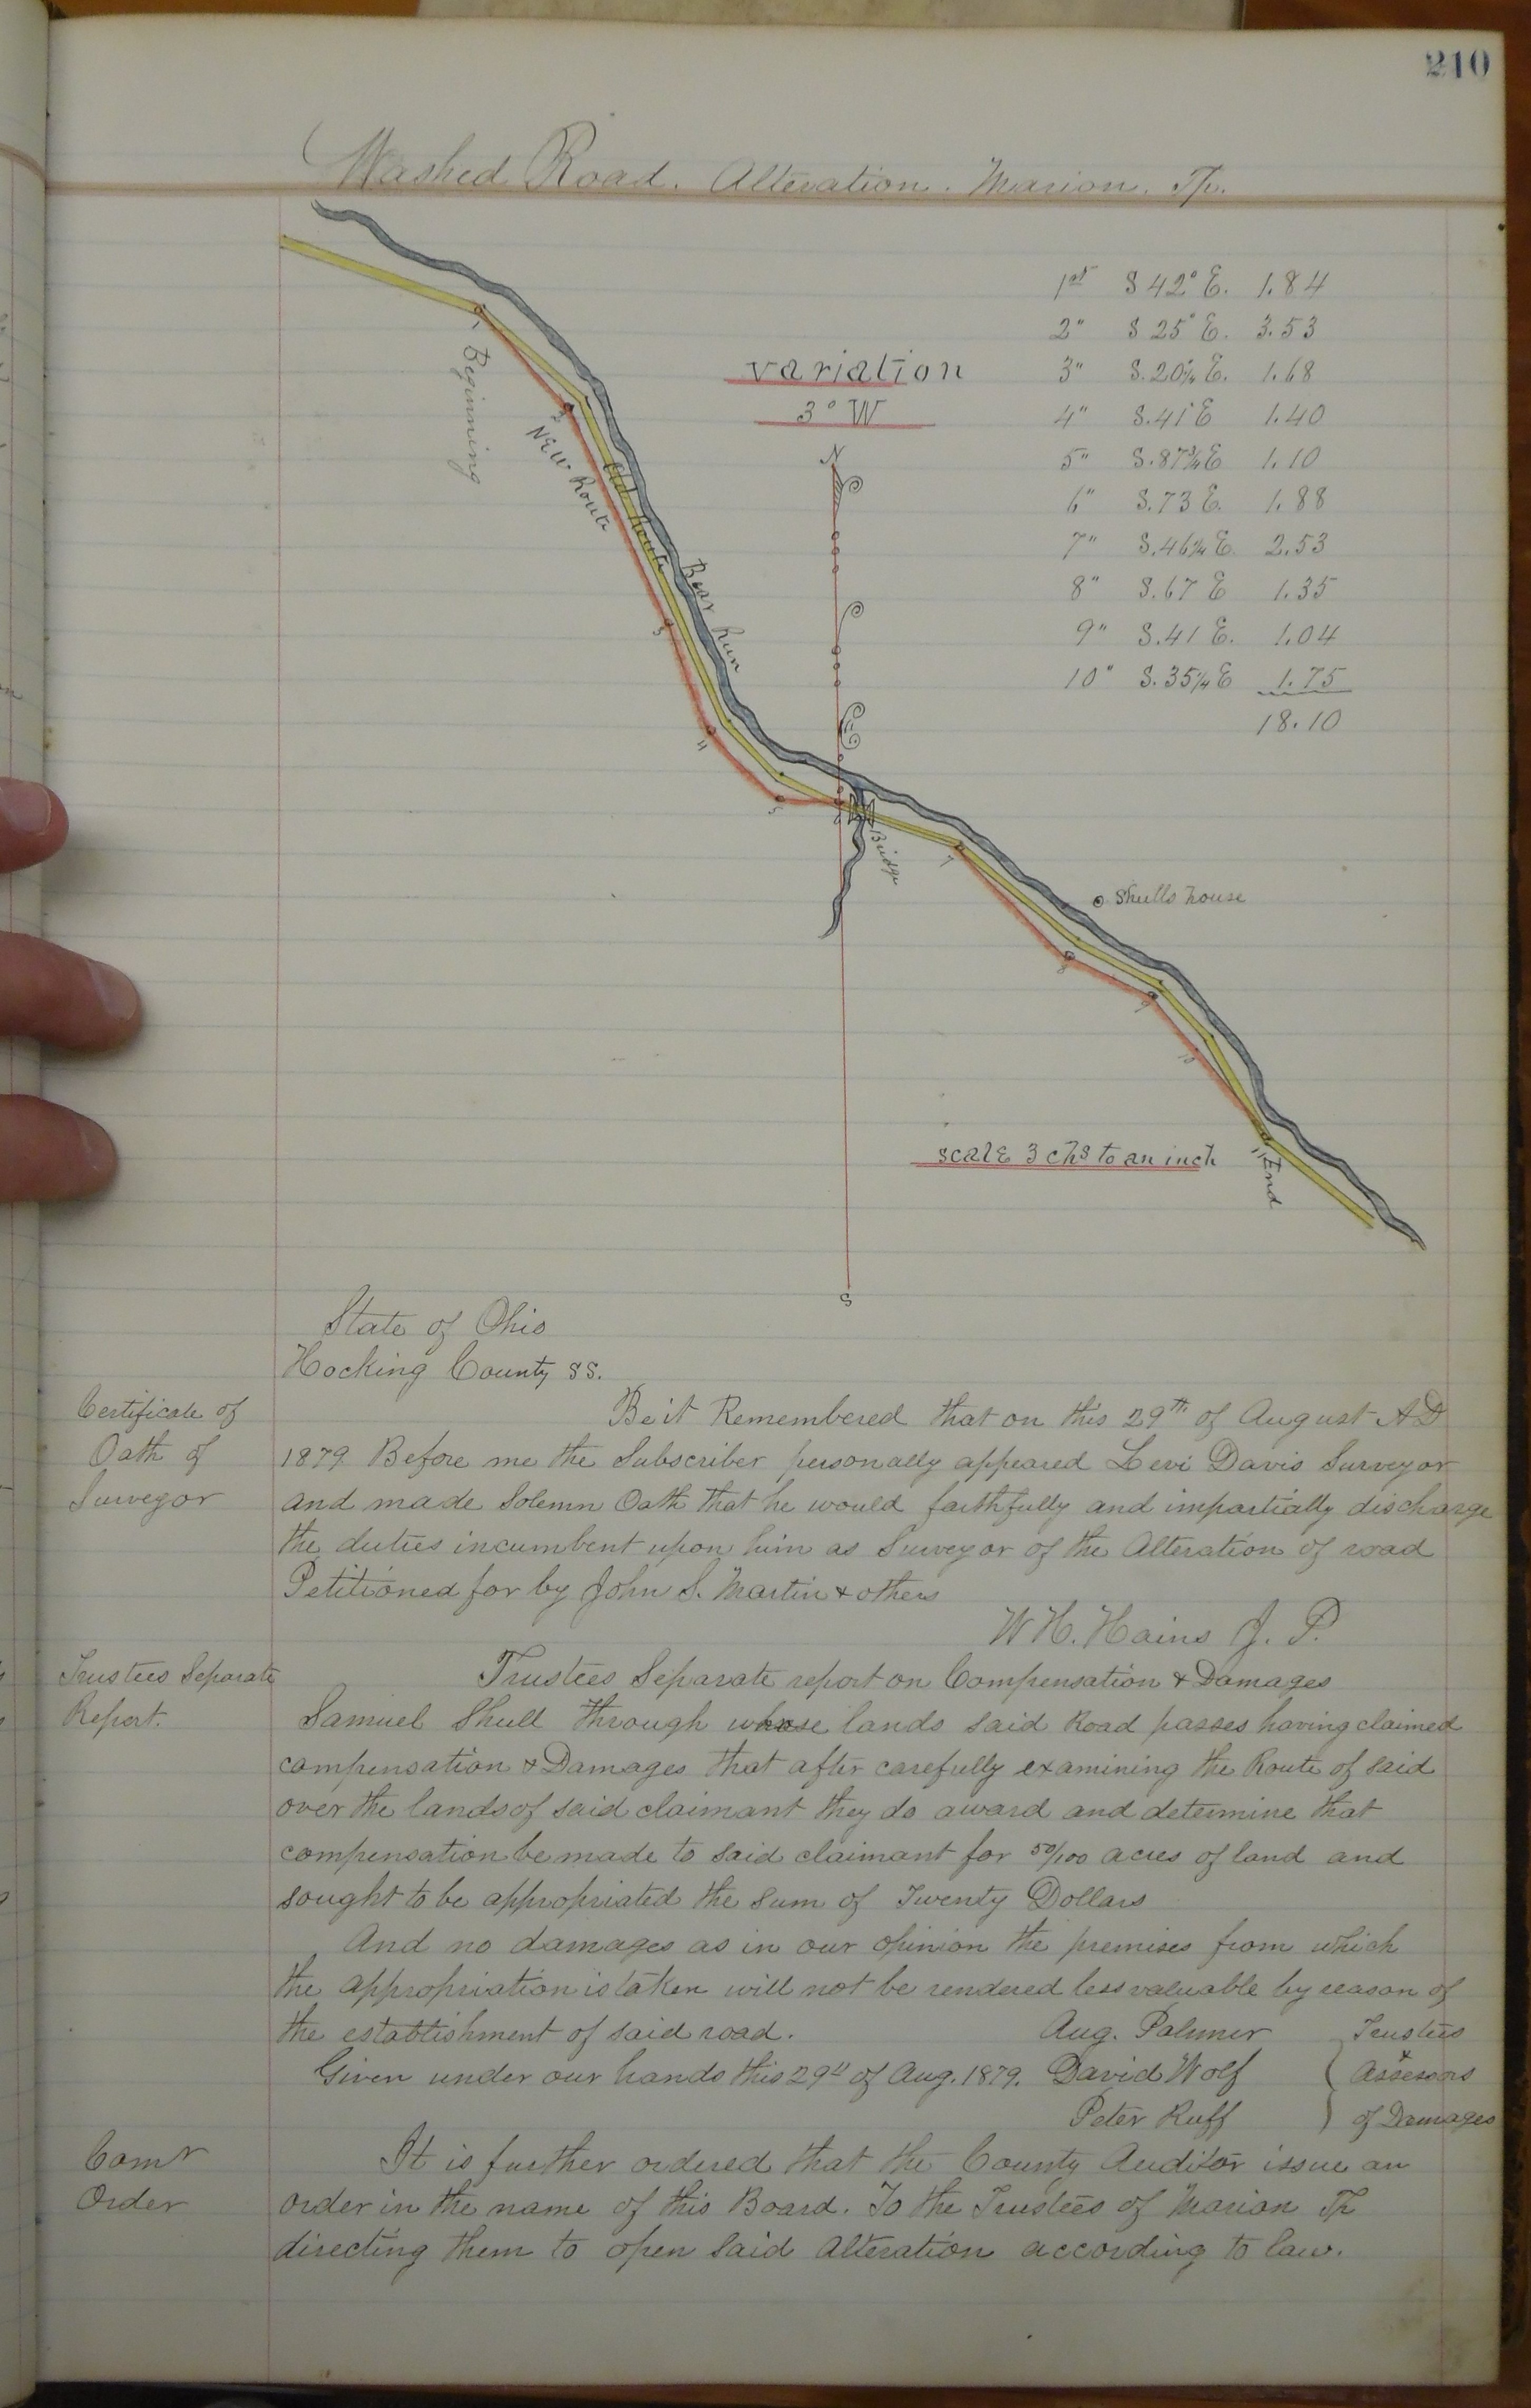 210
Washed Road. Alteration. Marion. Tp.
1st S 42° E. 1.84
2" S 25° E. 3.53
3" S. 20¼ E. 1.68
4" S. 41° E 1.40
5" S. 87¾ E 1.10
6" S. 73 E. 1.88
7" S. 46¼ E. 2.53
8" S. 67 E 1.35
9" S. 41 E. 1.04
10" S. 35¼ E 1.75
18.10
variation
3° W
N
1
Beginning
2
New Route
Old Route
Bear Run
3
4
5
6
Bridge
7
Shulls house
8
9
10
scale 3 chs to an inch
11
End
S
State of Ohio
Hocking County ss.
Certificate of
Oath of
Surveyor
Be it Remembered that on this 29th of August AD
1879 Before me the Subscriber personally appeared Levi Davis Surveyor
and made Solemn Oath that he would faithfully and impartially discharge
the duties incumbent upon him as Surveyor of the Alteration of road
Petitioned for by John S. Martin & others
W H. Hains J. P.
Trustees Separate
Report.
Trustees Separate report on Compensation & Damages
Samuel Shull through whose lands said Road passes having claimed
compensation & Damages that after carefully examining the Route of said
over the lands of said claimant they do award and determine that
compensation be made to said claimant for 50/100 acres of land and
sought to be appropriated the sum of Twenty Dollars
And no damages as in our opinion the premises from which
the appropriation is taken will not be rendered less valuable by reason of
the establishment of said road. Aug. Palmer Trustees
Given under our hands this 29th of Aug. 1879. David Wolf & Assessors
Peter Ruff of Damages
Comr
Order
It is further ordered that the County Auditor issue an
order in the name of this Board. To the Trustees of Marion Tp
directing them to open said Alteration according to law.